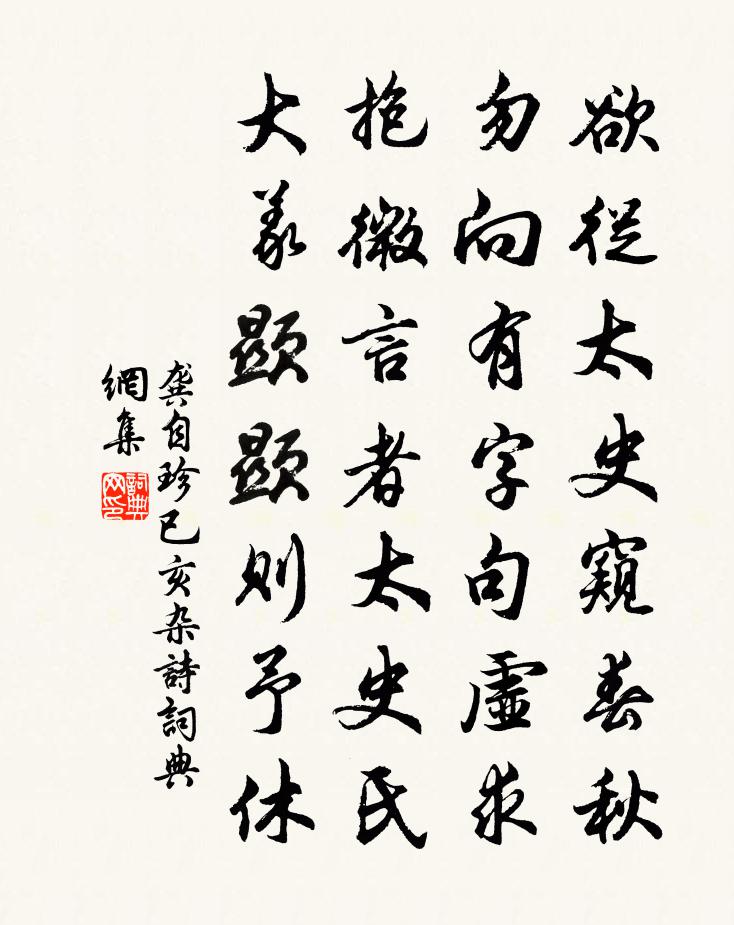 欲從太史窺春秋
勿向有字句虛求
抱微言者太史氏
大義顯顯則予休
龔自珍已亥杂詩詞典
網集
詞典
网印